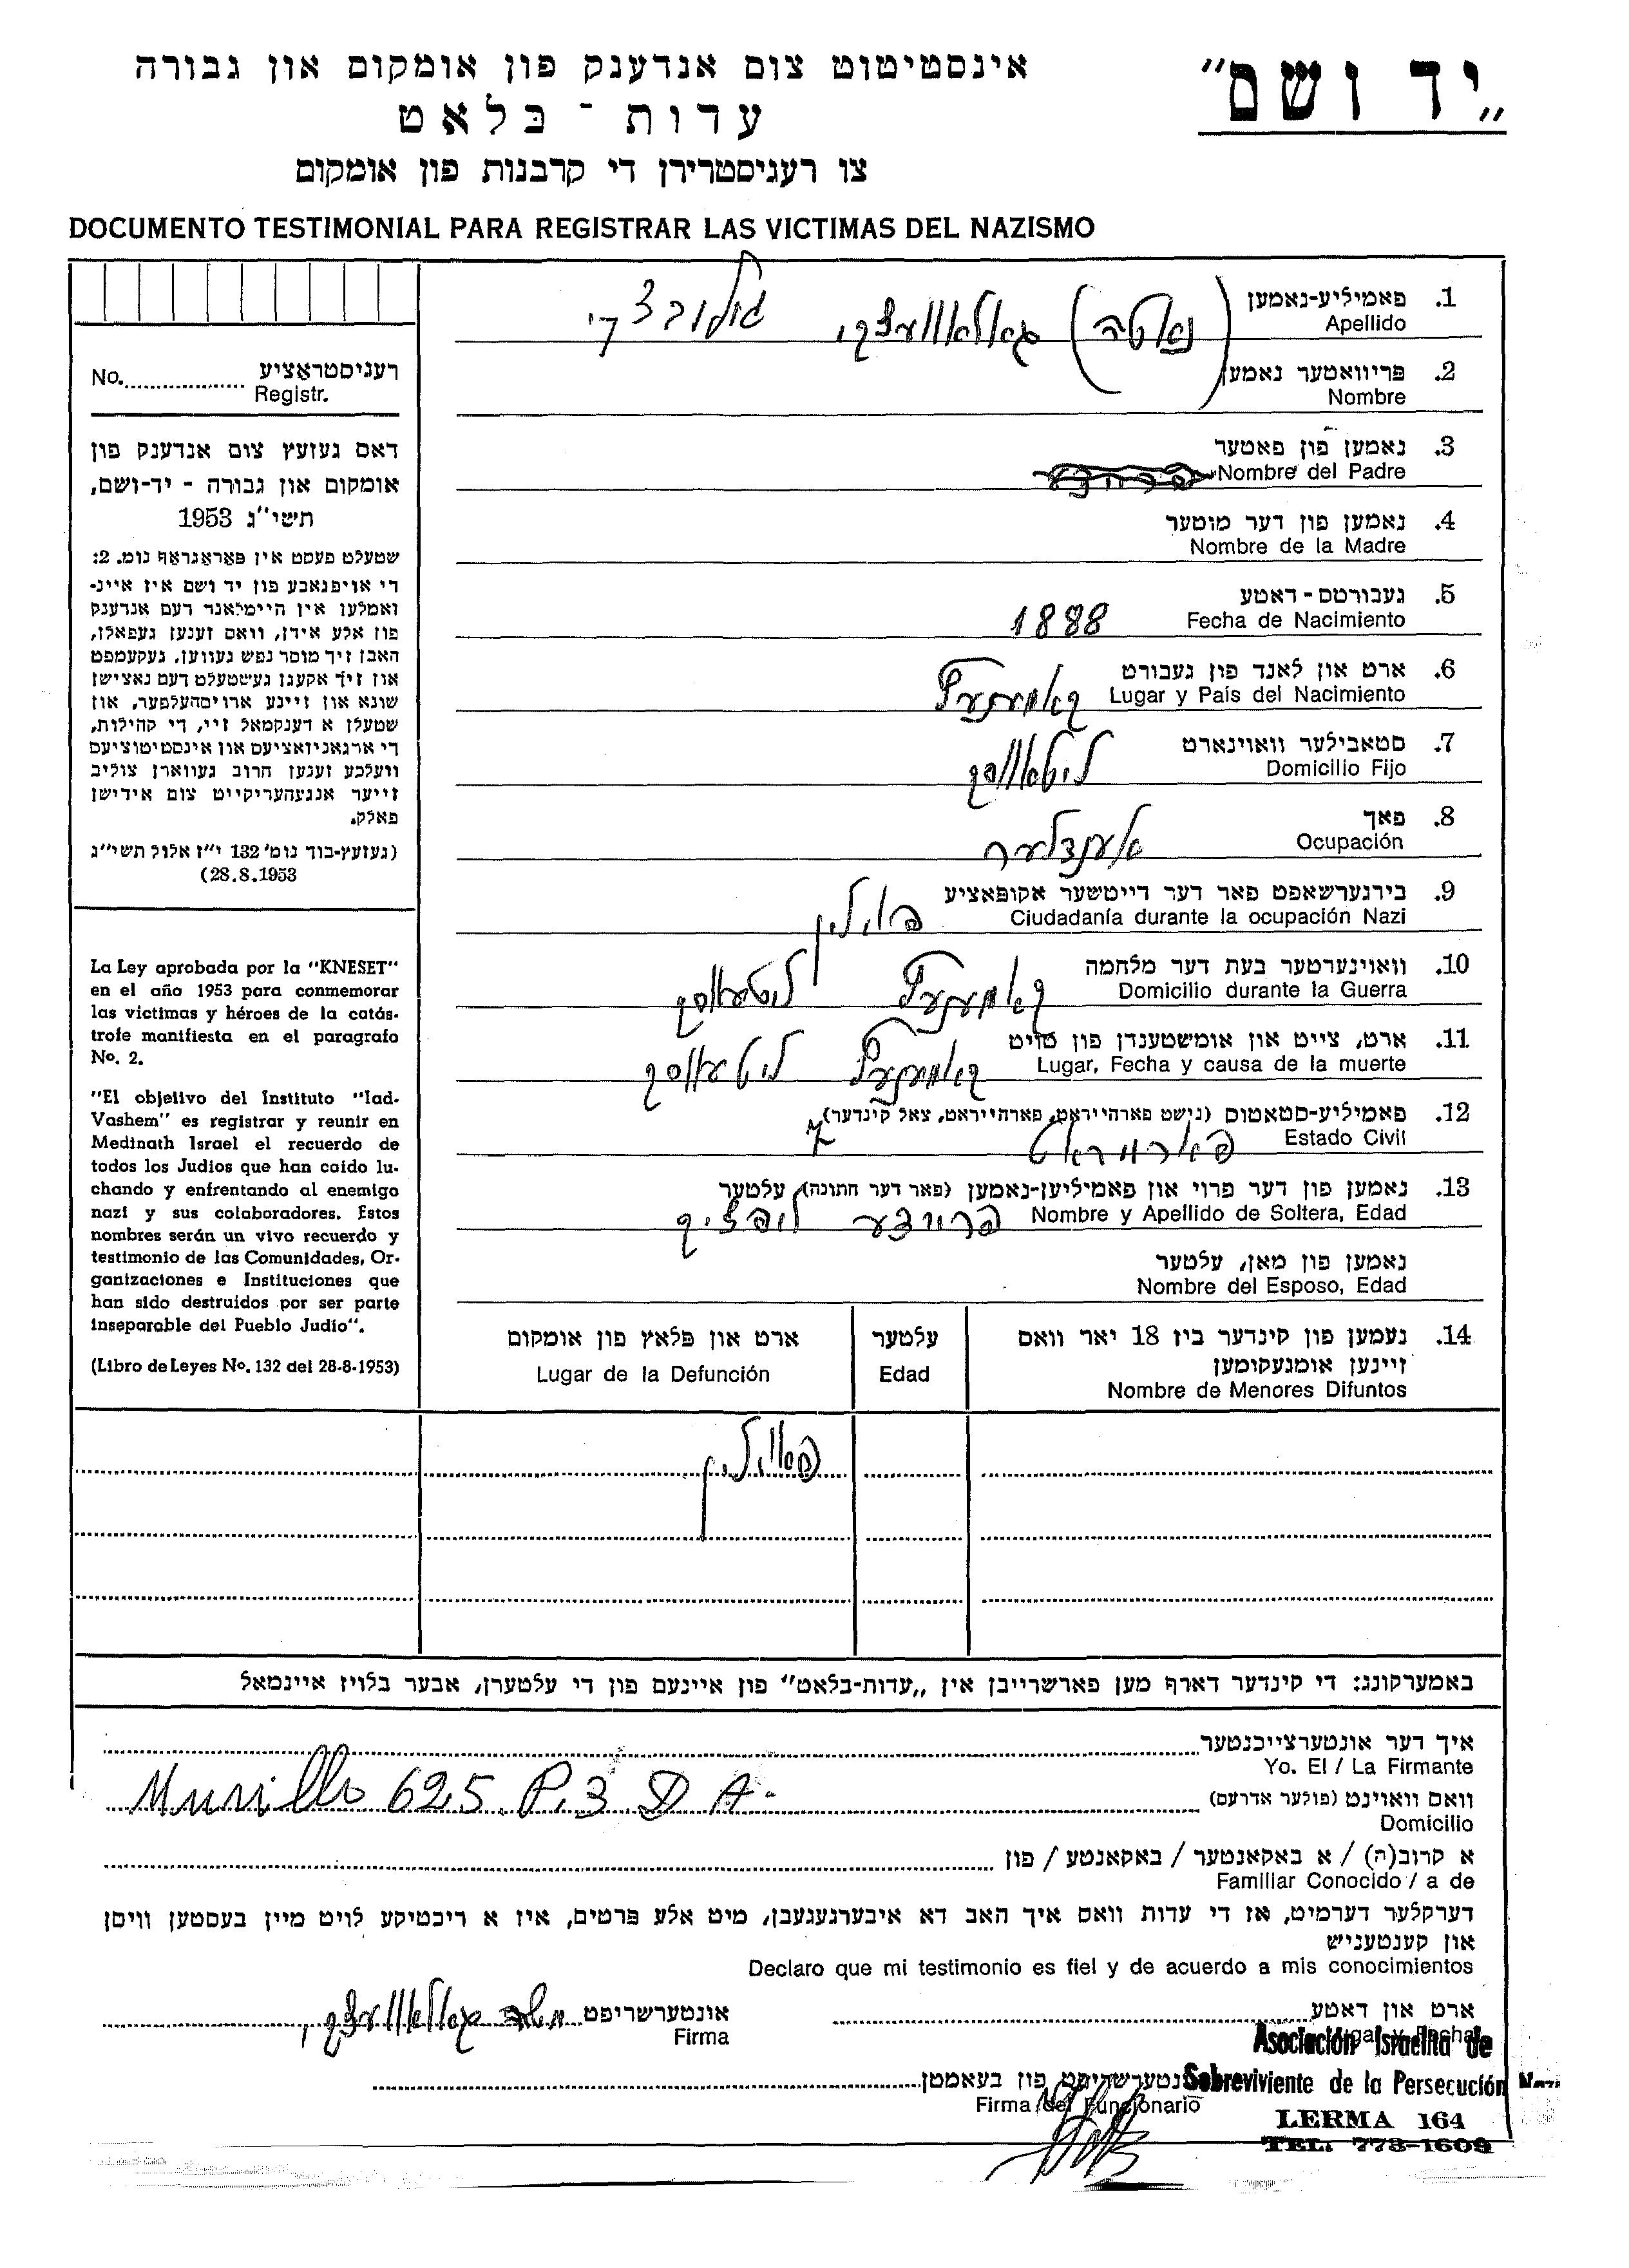 „יד ושם"
אינסטיטוט צום אנדענק פון אומקום און גבורה
עדות - בלאט
צו רעגיסטרירן די קרבנות פון אומקום
DOCUMENTO TESTIMONIAL PARA REGISTRAR LAS VICTIMAS DEL NAZISMO
1. פאמיליע-נאמען
Apellido
2. פריוואטער נאמען
Nombre
3. נאמען פון פאטער
Nombre del Padre
4. נאמען פון דער מוטער
Nombre de la Madre
5. געבורטס - דאטע
Fecha de Nacimiento 1888
6. ארט און לאנד פון געבורט
Lugar y País del Nacimiento קאמענעץ
7. סטאבילער וואוינארט
Domicilio Fijo ליטאווסק
8. פאך
Ocupación
9. בירגערשאפט פאר דער דייטשער אקופאציע
Ciudadanía durante la ocupación Nazi פוילין
10. וואוינערטער בעת דער מלחמה
Domicilio durante la Guerra קאמענעץ ליטעווסק
11. ארט, צייט און אומשטענדן פון טויט
Lugar, Fecha y causa de la muerte קאמענעץ ליטעווסק
12. פאמיליע-סטאטוס (נישט פארהייראט, פארהייראט, צאל קינדער)
Estado Civil
13. נאמען פון דער פרוי און פאמיליען-נאמען (פאר דער חתונה) עלטער
Nombre y Apellido de Soltera, Edad
נאמען פון מאן, עלטער
Nombre del Esposo, Edad
14. נעמען פון קינדער ביז 18 יאר וואס
זיינען אומגעקומען
Nombre de Menores Difuntos
עלטער
Edad
ארט און פלאץ פון אומקום
Lugar de la Defunción
פאוילין
רעגיסטראציע
No. Registr.
דאס געזעץ צום אנדענק פון
אומקום און גבורה - יד-ושם,
תשי"ג 1953
שטעלט פעסט אין פאראגראף נומ. 2:
די אויפגאבע פון יד ושם איז איינ-
זאמלען אין היימלאנד דעם אנדענק
פון אלע אידן, וואס זענען געפאלן,
האבן זיך מוסר נפש געווען, געקעמפט
און זיך אקעגן געשטעלט דעם נאצישן
שונא און זיינע ארויסהעלפער, און
שטעלן א דענקמאל זיי, די קהילות,
די ארגאניזאציעס און אינסטיטוציעס
וועלכע זענען חרוב געווארן צוליב
זייער אנגעהעריקייט צום אידישן
פאלק.
(געזעץ-בוך נומ' 132 י"ז אלול תשי"ג
28.8.1953)
La Ley aprobada por la "KNESET"
en el año 1953 para conmemorar
las víctimas y héroes de la catás-
trofe manifiesta en el paragrafo
No. 2.
"El objetivo del Instituto "Iad-
Vashem" es registrar y reunir en
Medinath Israel el recuerdo de
todos los Judios que han caido lu-
chando y enfrentando al enemigo
nazi y sus colaboradores. Estos
nombres serán un vivo recuerdo y
testimonio de las Comunidades, Or-
ganizaciones e Instituciones que
han sido destruidos por ser parte
inseparable del Pueblo Judio".
(Libro de Leyes No. 132 del 28-8-1953)
באמערקונג: די קינדער דארף מען פארשרייבן אין „עדות-בלאט" פון איינעם פון די עלטערן, אבער בלויז איינמאל
איך דער אונטערצייכנטער
Yo. El / La Firmante
וואס וואוינט (פולער אדרעס) Murillo 625 P.3 D A.
Domicilio
א קרוב(ה) / א באקאנטער / באקאנטע / פון
Familiar Conocido / a de
דערקלער דערמיט, אז די עדות וואס איך האב דא איבערגעגעבן, מיט אלע פרטים, איז א ריכטיקע לויט מיין בעסטען וויסן
און קענטעניש
Declaro que mi testimonio es fiel y de acuerdo a mis conocimientos
ארט און דאטע
אונטערשריפט
Firma
Asociación Israelita de
Sobreviviente de la Persecución
פון בעאמטן
Firma del Funcionario
LERMA 164
TEL. 773-1609